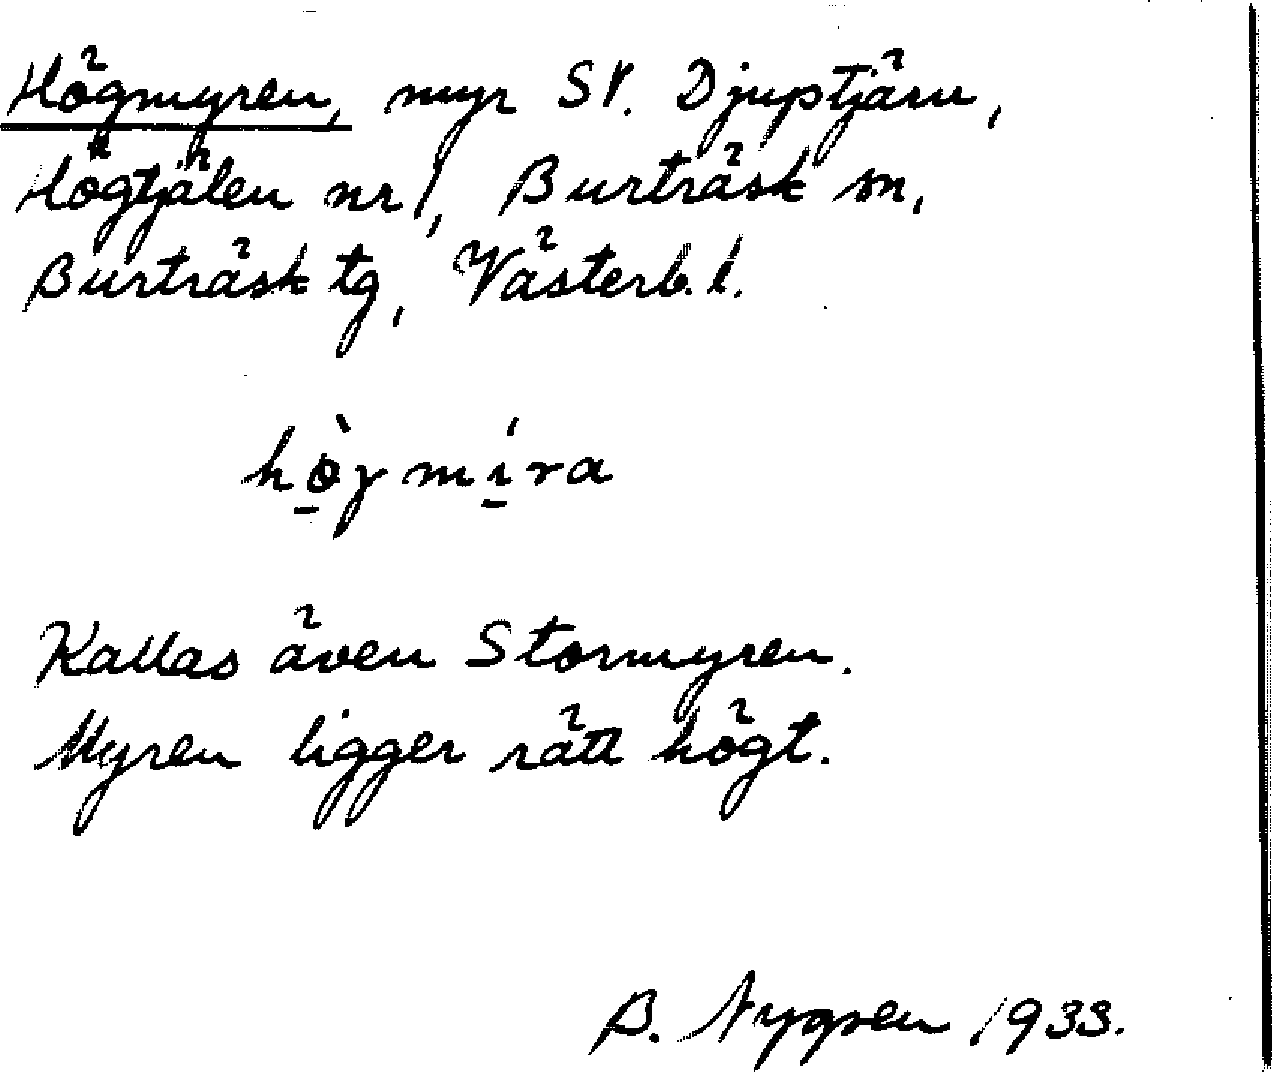 Högmyren, myr SV. Djuptjärn,
Högtjälen nr 1, Burträsk sn,
Burträsk tg, Västerb. l.
hö̀gmíra
Kallas även Stormyren.
Myren ligger rätt högt.
B. Nygren 1933.